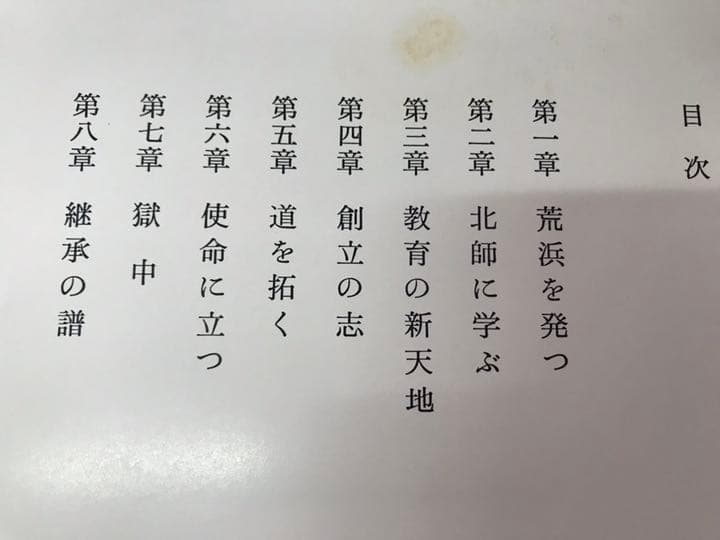 目次
第一章 荒浜を発つ
第二章 北師に学ぶ
第三章 教育の新天地
第四章 創立の志
第五章 道を拓く
第六章 使命に立つ
第七章 獄中
第八章 継承の譜